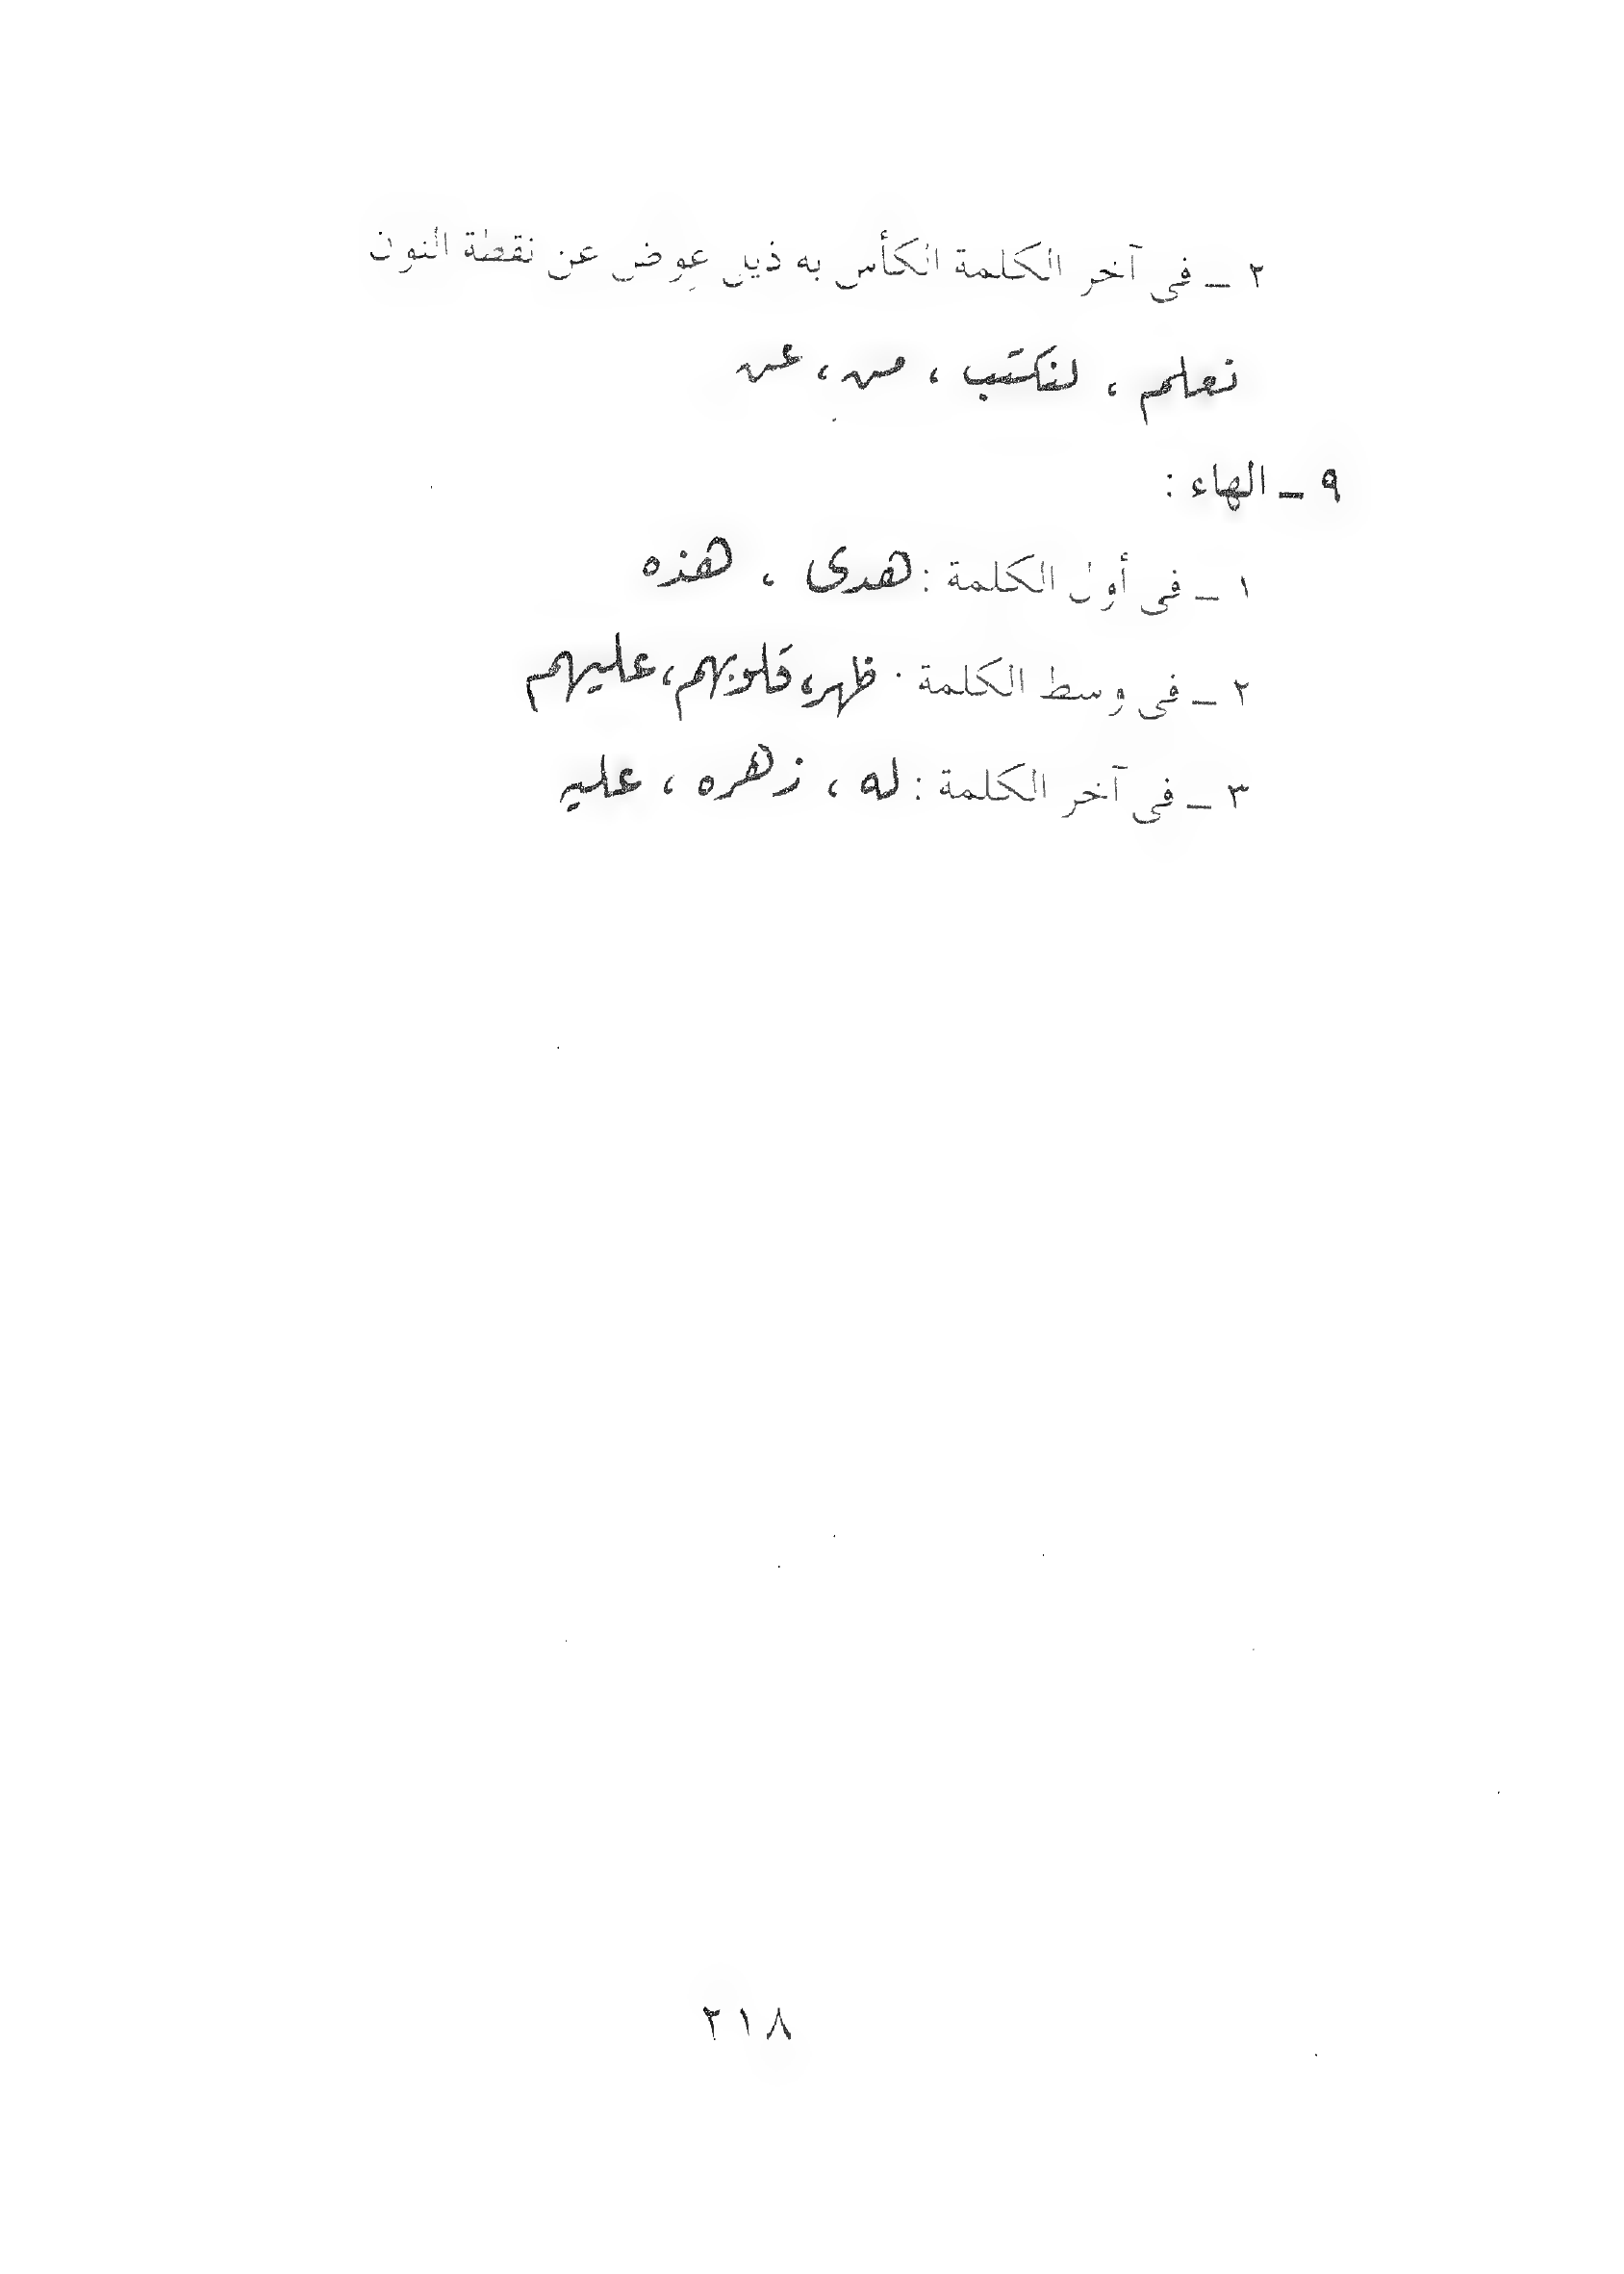 ٢ ــ فى آخر الكلمة الكأس به ذيل عوض عن نقطة النون
نعلم ، لنكتب ، من ، عن
٩ ــ الهاء :
١ ــ فى أول الكلمة : هدى ، هذه
٢ ــ فى وسط الكلمة : ظهر، قلوبهم، عليهم
٣ ــ فى آخر الكلمة : له ، زهره ، عليه
٢١٨